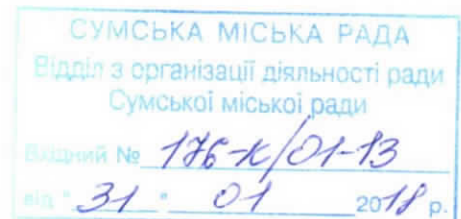 СУМСЬКА МІСЬКА РАДА
Відділ з організації діяльності ради
Сумської міської ради
Вхідний № 176-К/01-13
від " 31 " 01 2018 р.